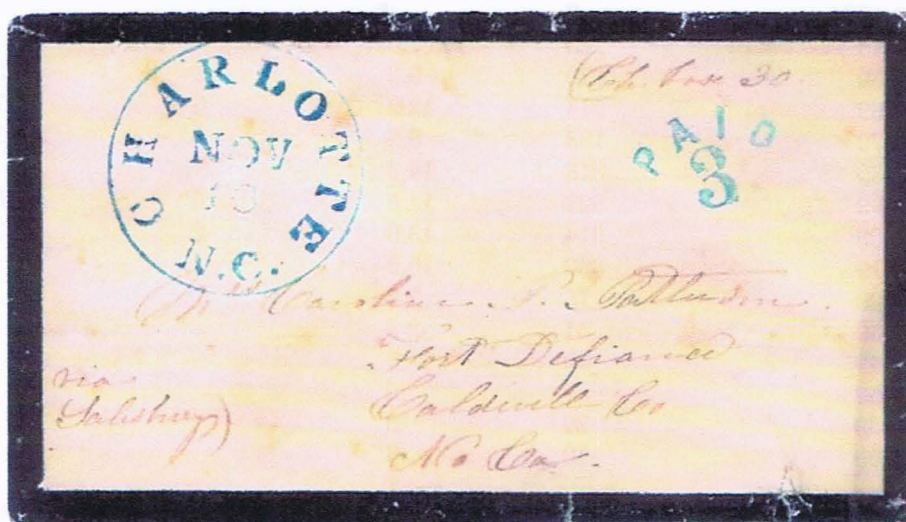 CHARLOTTE
NOV
18
N.C.
(Ch. box 30
PAID
3
Caroline
Fort Defiance
Caldwell Co
No Ca.
via
Salisbury)